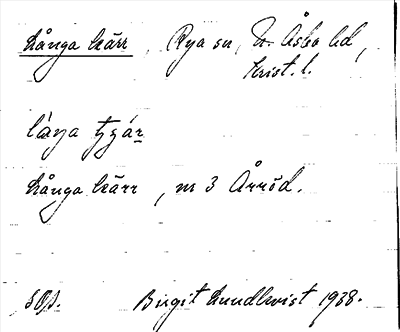 Långa kärr, Rya sn, N. Åsbo hd,
Krist. l.
långa kärr
Långa kärr, nr 3 Årröd.
Birgit Lundkvist 1938.